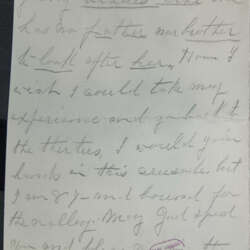 has no father nor brother
to look after her. Now I
wish I could take my
experience and go back to
the thirties, I would go in
this crusade but
I am 87 and bound for
the valley. May God speed
you and